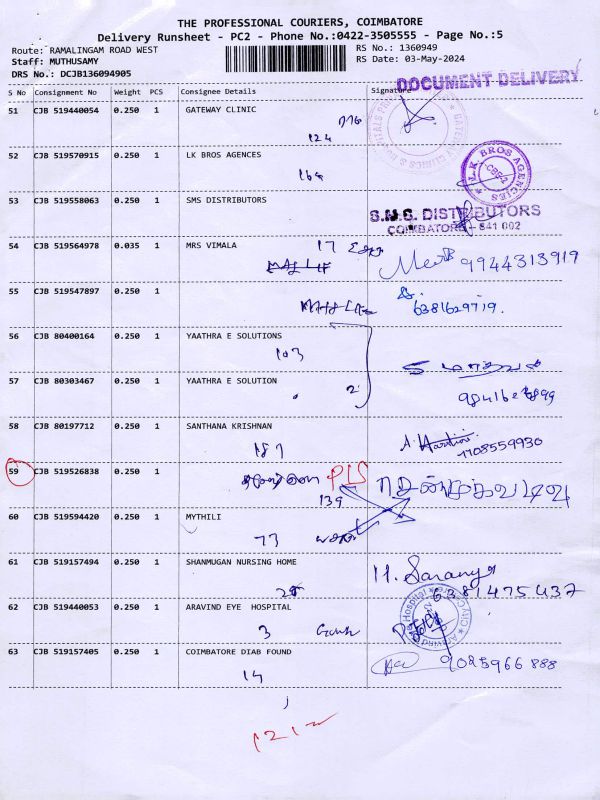 THE PROFESSIONAL COURIERS, COIMBATORE
Delivery Runsheet - PC2 - Phone No.:0422-3505555 - Page No.:5
Route: RAMALINGAM ROAD WEST
RS No.: 1360949
Staff: MUTHUSAMY
RS Date: 03-May-2024
DRS No.: DCJB136094905
DOCUMENT DELIVERY
S No Consignment No Weight PCS Consignee Details Signature
51 CJB 519440054 0.250 1 GATEWAY CLINIC
124
52 CJB 519570915 0.250 1 LK BROS AGENCES
L.K. BROS AGENCIES
164
53 CJB 519558063 0.250 1 SMS DISTRIBUTORS
S.M.S. DISTRIBUTORS
COIMBATORE - 641 002
54 CJB 519564978 0.035 1 MRS VIMALA 17
9944313919
55 CJB 519547897 0.250 1
6381629719.
56 CJB 80400164 0.250 1 YAATHRA E SOLUTIONS
103
57 CJB 80303467 0.250 1 YAATHRA E SOLUTION
2
58 CJB 80197712 0.250 1 SANTHANA KRISHNAN
187
59 CJB 519526838 0.250 1
139
60 CJB 519594420 0.250 1 MYTHILI
73
61 CJB 519157494 0.250 1 SHANMUGAN NURSING HOME
M. Saranya
28 6381475437
62 CJB 519440053 0.250 1 ARAVIND EYE HOSPITAL
3
63 CJB 519157405 0.250 1 COIMBATORE DIAB FOUND
9025966888
14